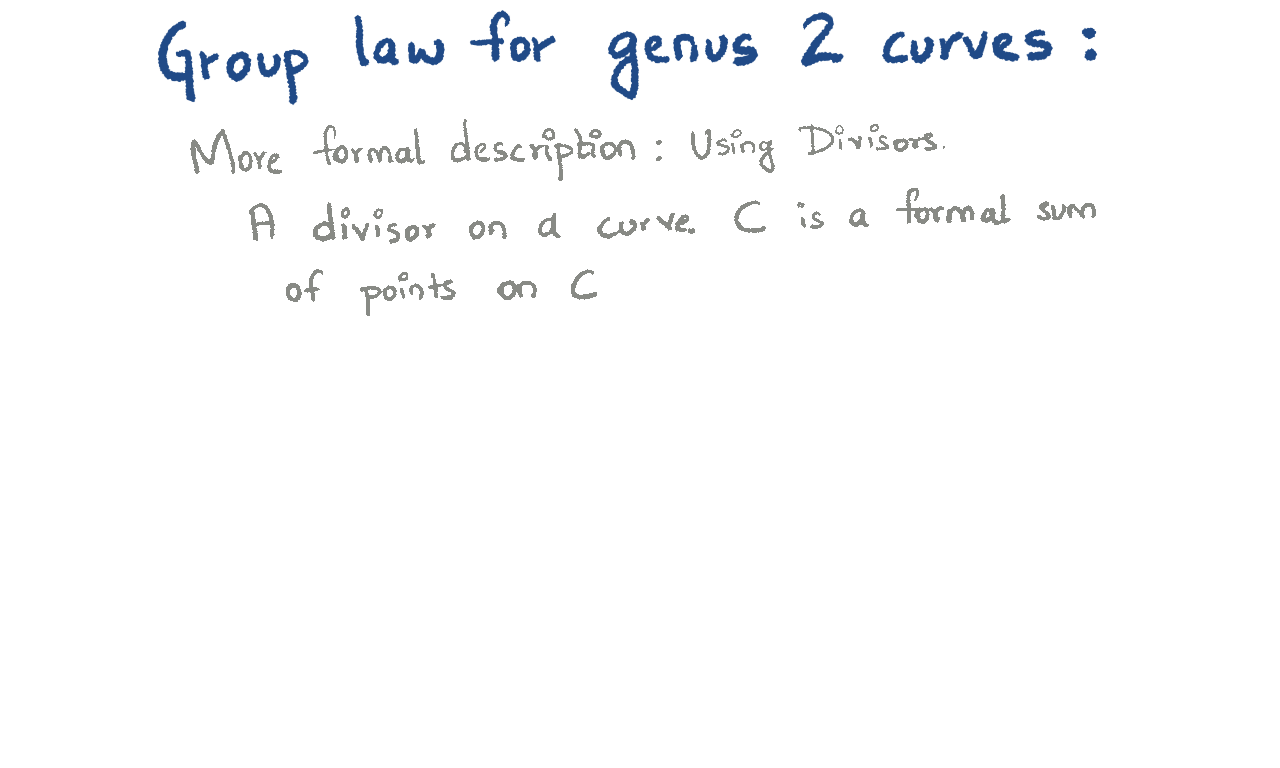 Group law for genus 2 curves :
More formal description : Using Divisors.
A divisor on a curve. C is a formal sum
of points on C